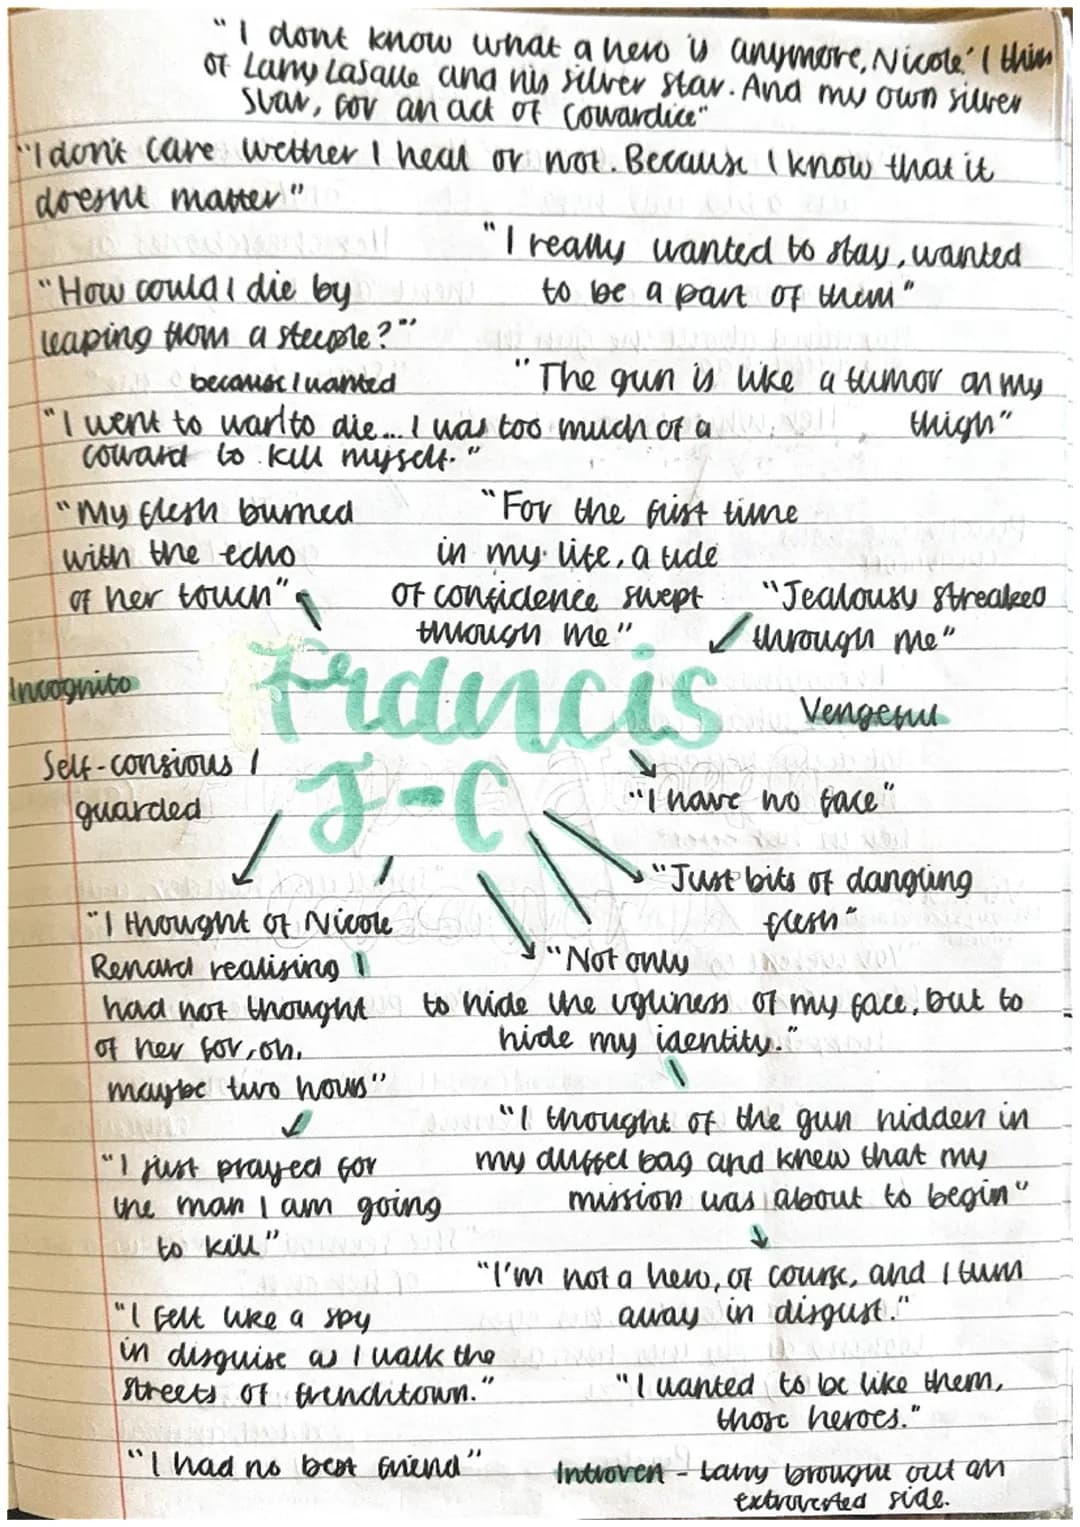 "I dont know what a hero is anymore, Nicole.' I think
of Larry LaSalle and his silver star. And my own silver
star, for an act of cowardice"
"I don't care wether I heal or not. Because I know that it
doesnt matter"
"I really wanted to stay, wanted
to be a part of them"
"How could I die by
leaping from a steeple?"
because I wanted
"The gun is like a tumor on my
thigh"
"I went to war to die... I was too much of a
coward to kill myself."
"My flesh burned
with the echo
of her touch"
"For the first time
in my life, a tide
of confidence swept
through me"
"Jealousy streaked
through me"
Francis
J-C
Incognito
Vengeful
Self-consious /
guarded
"I have no face"
"Just bits of dangling
flesh"
"I thought of Nicole
Renard realising I
had not thought
of her for, oh,
maybe two hours"
"Not only
to hide the ugliness of my face, but to
hide my identity."
"I just prayed for
the man I am going
to kill"
"I thought of the gun hidden in
my duffel bag and knew that my
mission was about to begin"
"I'm not a hero, of course, and I turn
away in disgust."
"I felt like a spy
in disguise as I walk the
streets of frenchtown."
"I wanted to be like them,
those heroes."
"I had no best friend"
Introvert - Larry brought out an
extroverted side.